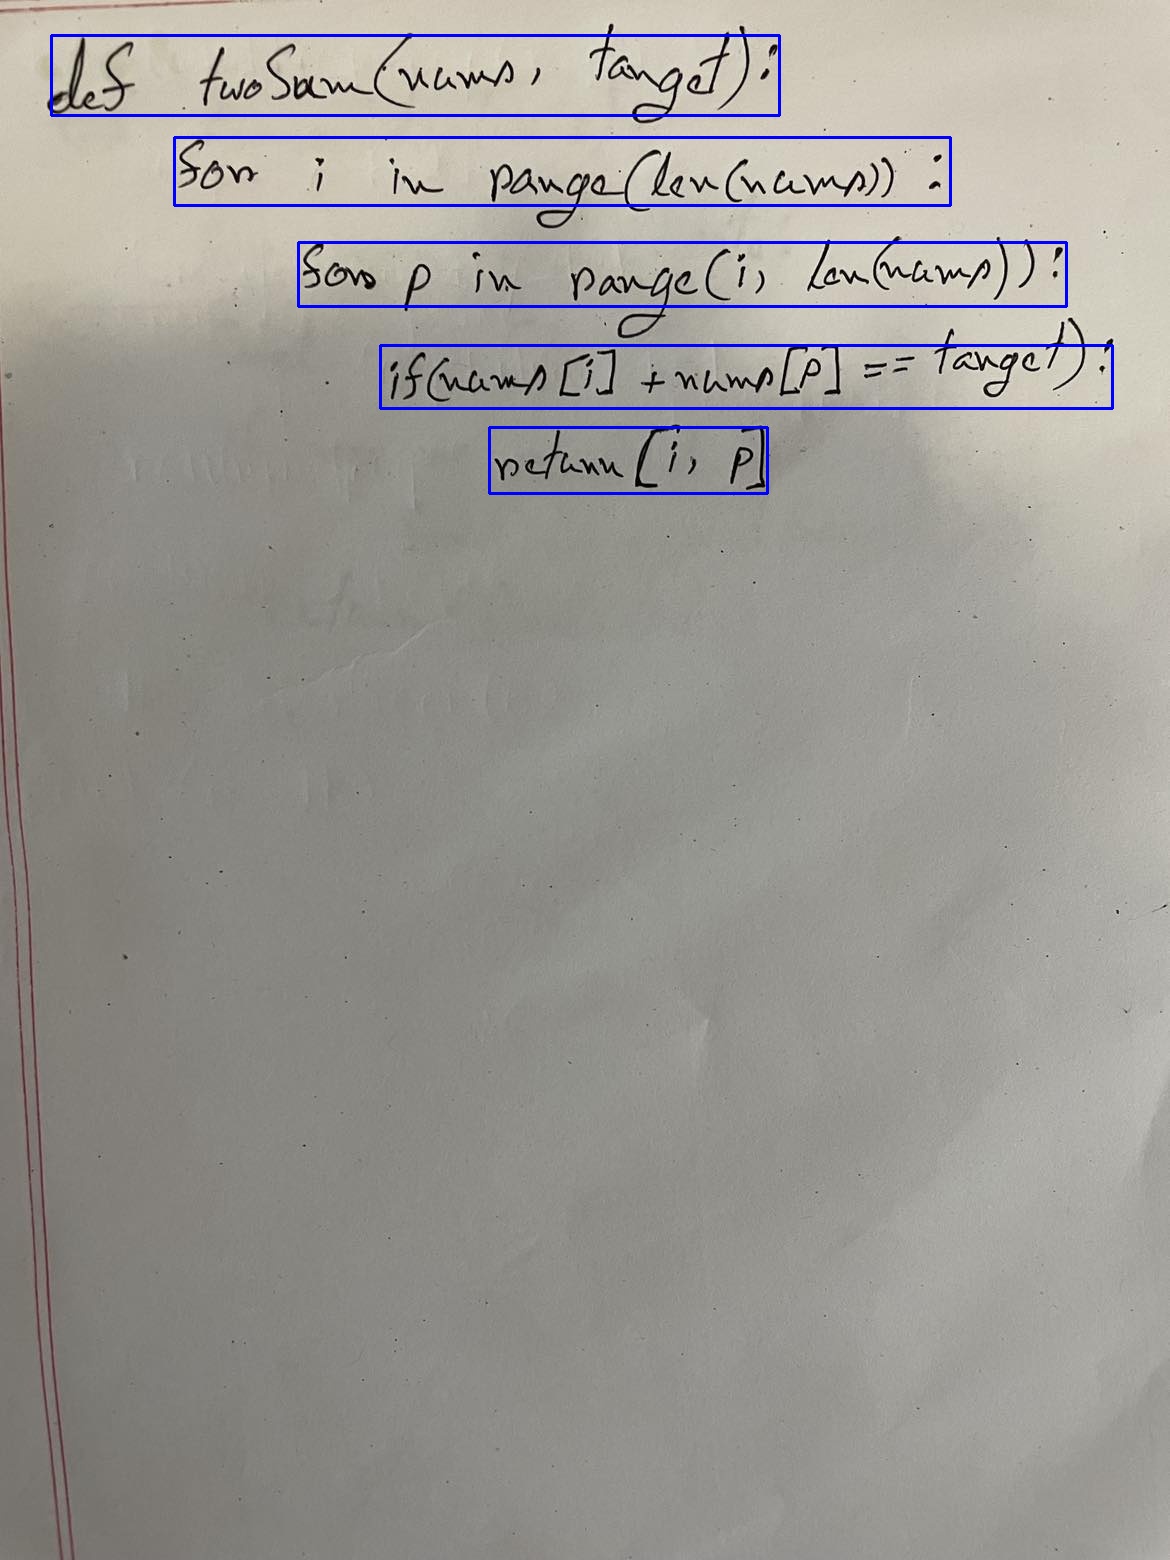 def twoSum(nums, target):
for i in range(len(nums)):
for p in range(i, len(nums)):
if(nums[i] +nums[p] == target):
return [i, p]